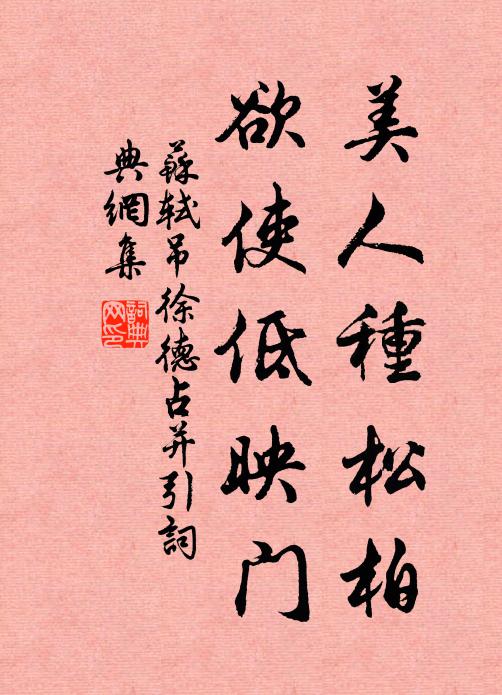 美人種松柏
欲使低映門
蘇軾吊徐德占并引詞
典網集
詞典網印